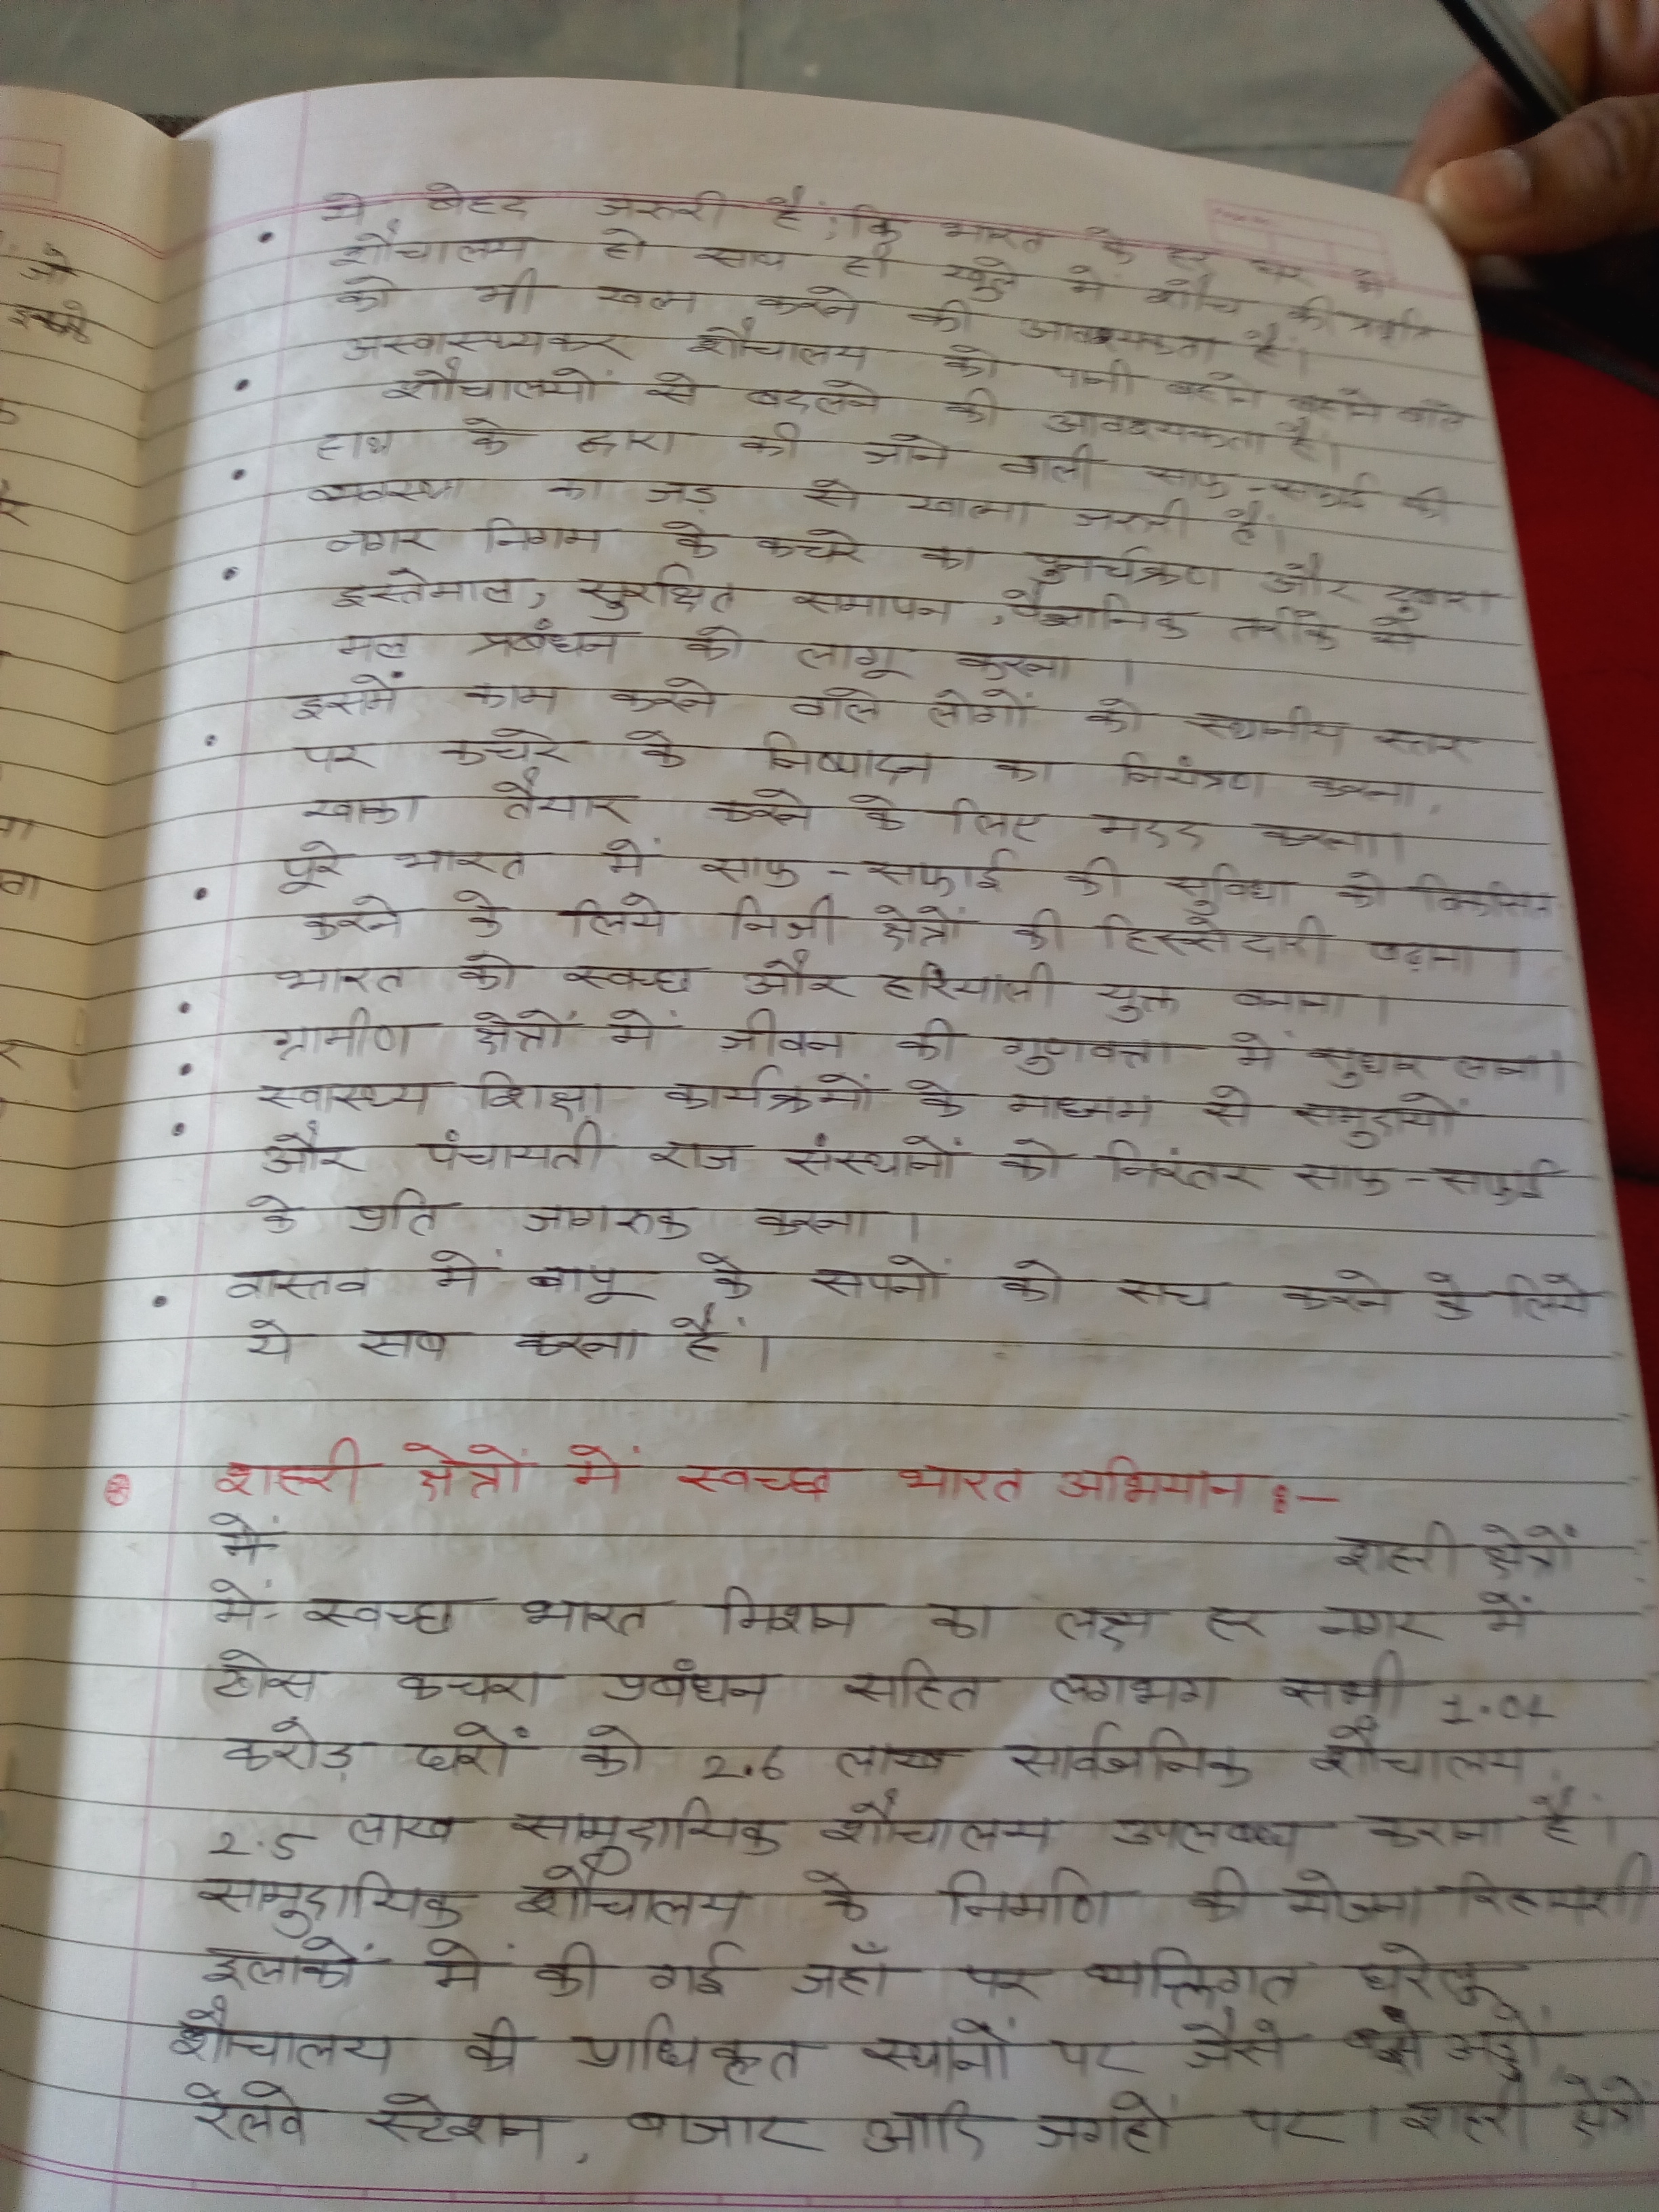 ये बेहद जरुरी है, कि भारत के हर घर में
शौचालय हो साथ ही खुले में शौच की प्रवृति
को भी खत्म करने की आवश्यकता है।
अस्वास्थ्यकर शौचालय को पानी बहाने वाले
शौचालयों से बदलने की आवश्यकता है।
हाथ के द्वारा की जाने वाली साफ-सफाई की
व्यवस्था का जड़ से खात्मा जरुरी है।
नगर निगम के कचरे का पुनर्चक्रण और दुबारा
इस्तेमाल, सुरक्षित समापन, वैज्ञानिक तरीके से
मल प्रबंधन को लागू करना।
इसमें काम करने वाले लोगों को स्थानीय स्तर
पर कचरे के निष्पादन का नियंत्रण करना,
खाका तैयार करने के लिए मदद करना।
पूरे भारत में साफ-सफाई की सुविधा को विकसित
करने के लिये निजी क्षेत्रों की हिस्सेदारी बढ़ाना।
भारत को स्वच्छ और हरियाली युक्त बनाना।
ग्रामीण क्षेत्रों में जीवन की गुणवत्ता में सुधार लाना।
स्वास्थ्य शिक्षा कार्यक्रमों के माध्यम से समुदायों
और पंचायती राज संस्थानों को निरंतर साफ-सफाई
के प्रति जागरुक करना।
वास्तव में बापू के सपनों को सच करने के लिये
ये सब करना है।
शहरी क्षेत्रों में स्वच्छ भारत अभियान :-
में शहरी क्षेत्रों
में स्वच्छ भारत मिशन का लक्ष्य हर नगर में
ठोस कचरा प्रबंधन सहित लगभग सभी 1.04
करोड़ घरों को 2.6 लाख सार्वजनिक शौचालय,
2.5 लाख सामुदायिक शौचालय उपलब्ध कराना है।
सामुदायिक शौचालय के निर्माण की योजना रिहायशी
इलाकों में की गई जहाँ पर व्यक्तिगत घरेलू
शौचालय की प्राधिकृत स्थानों पर जैसे बस अड्डों,
रेलवे स्टेशन, बाजार आदि जगहों पर। शहरी क्षेत्रों